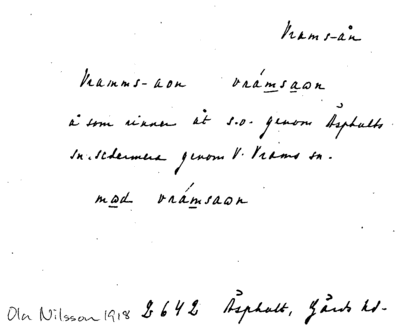 Vrams-ån
Vramms-aon vrámsaωn
å som rinner åt s.o. genom Äsphults
sn. genom V. Vrams sn.
mωd vrámsaωn
Ola Nilsson 1918 2642 Äsphult, Gärds hd-